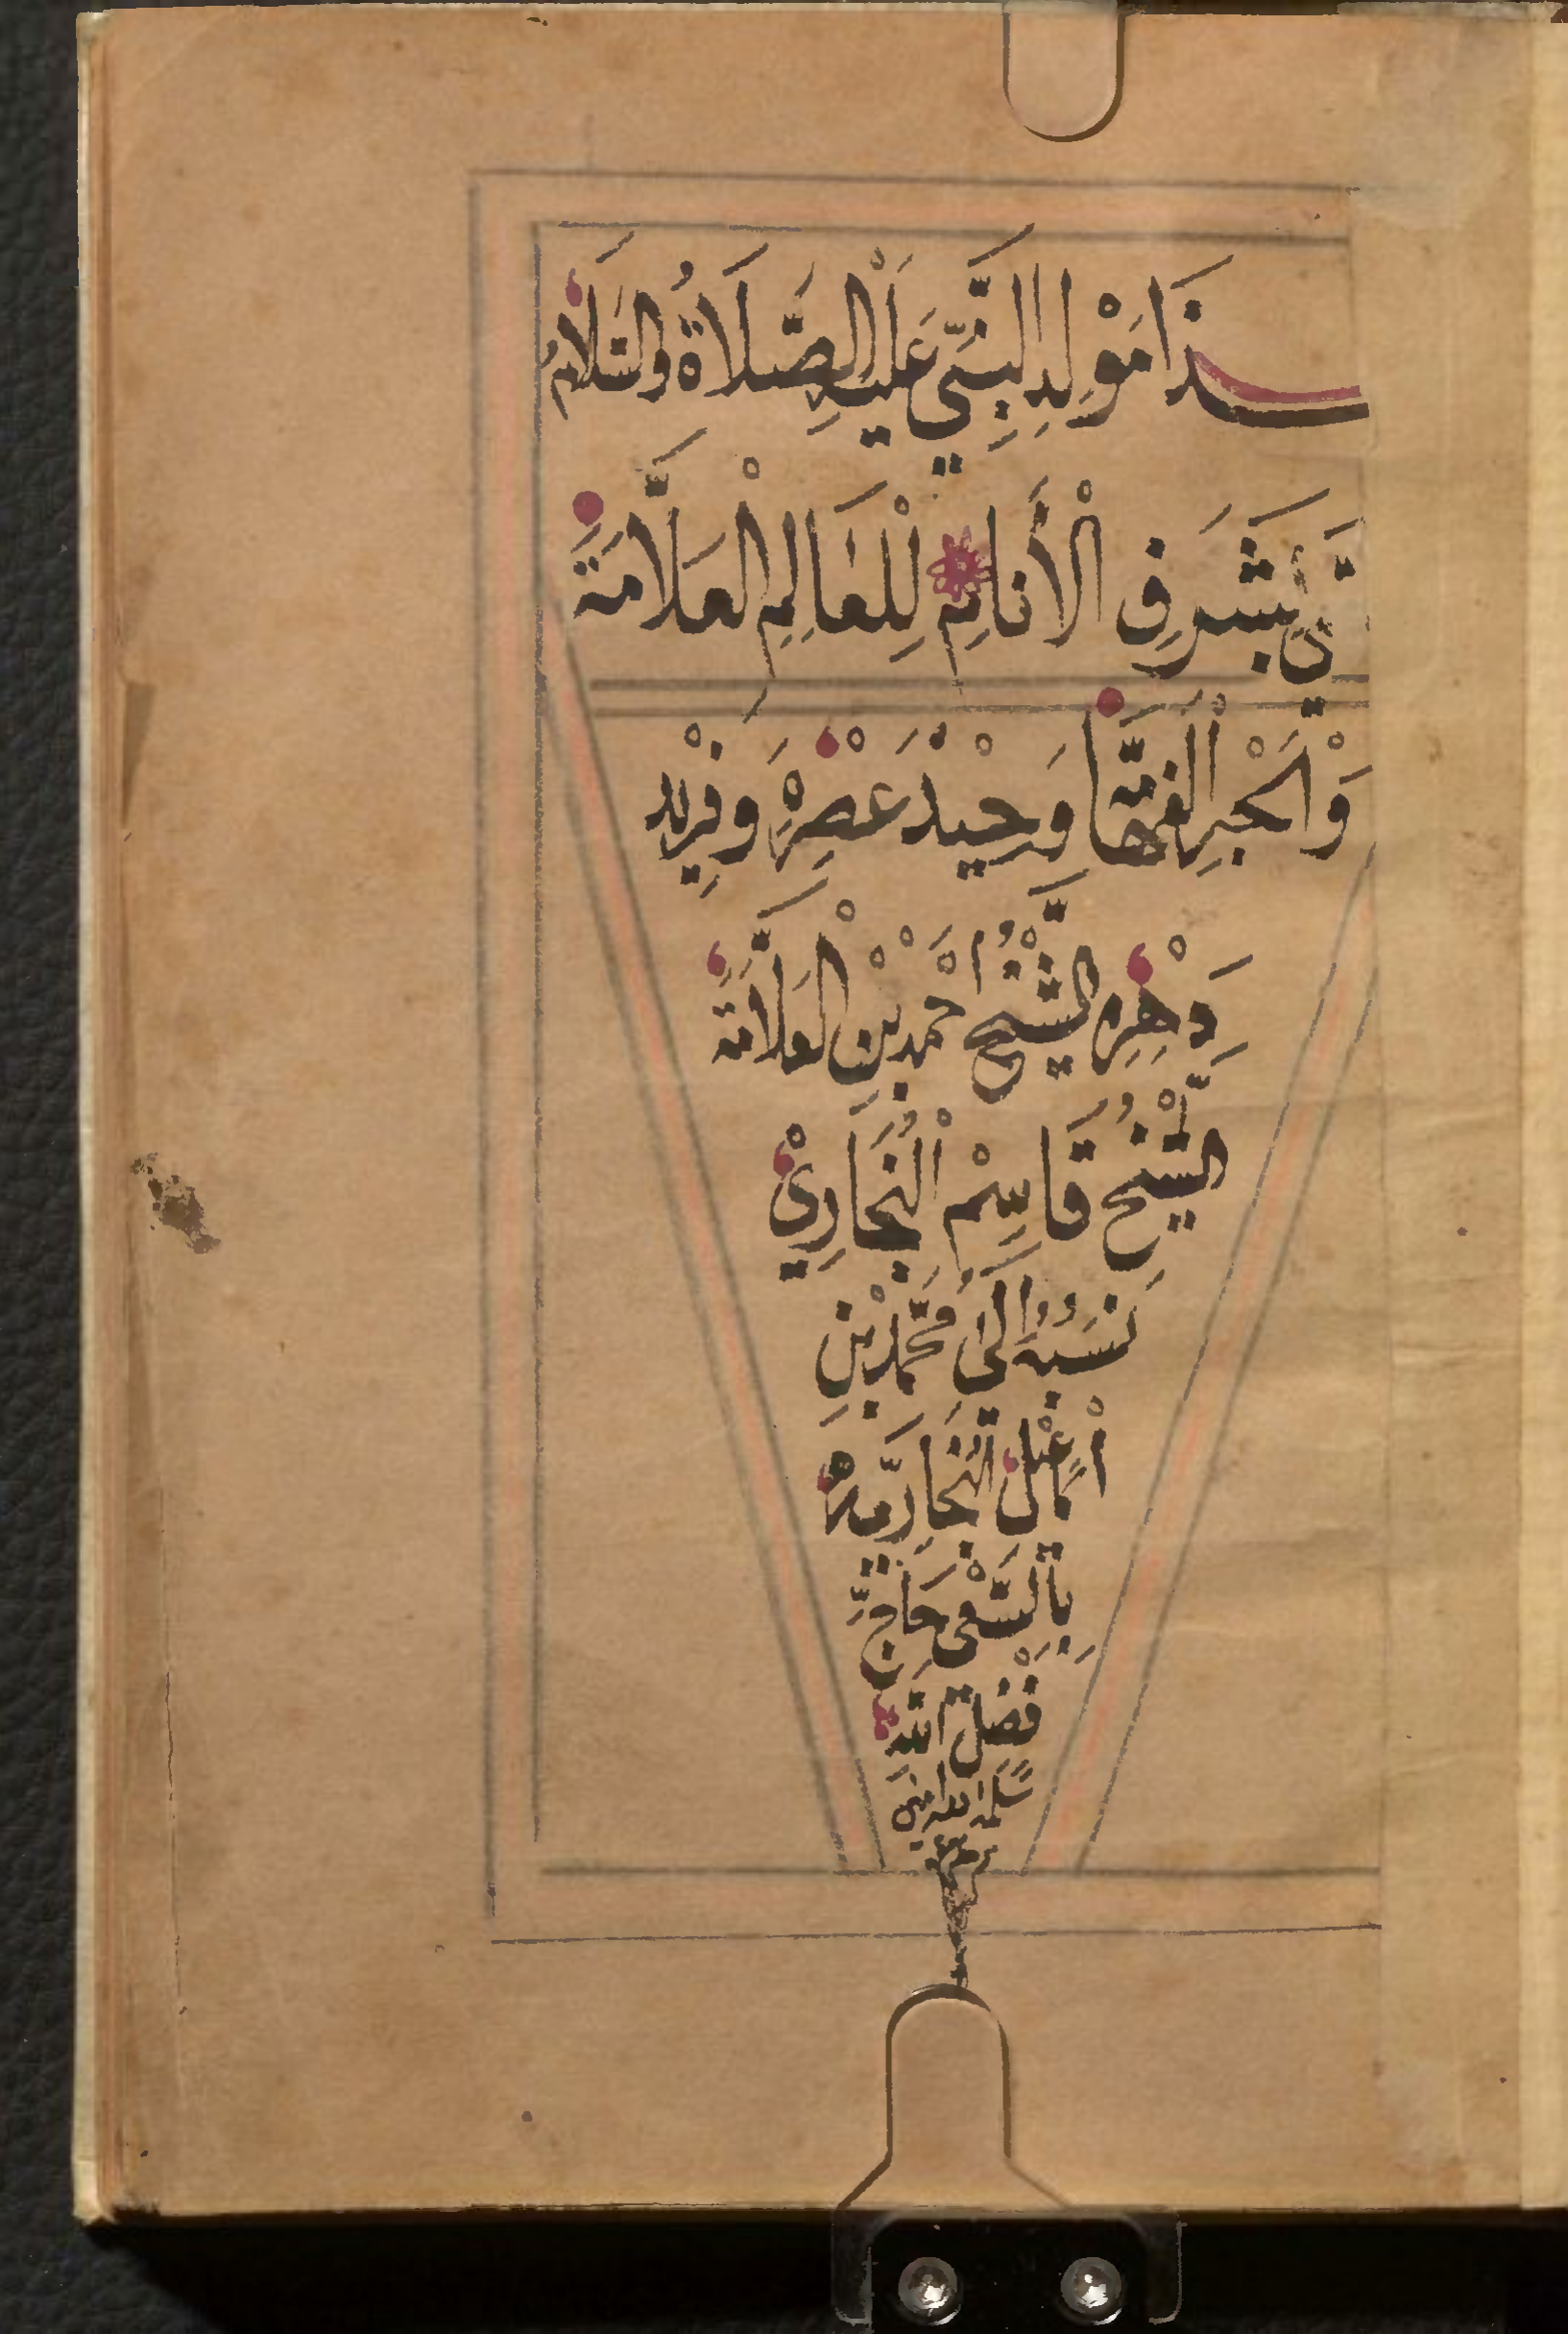 ـذَا مَوْلِدِ النَّبِيِّ عَلَيْهِ الصَّلَاةُ وَالسَّلَامُ
بِشَرَفِ الْأَنَامِ لِلْعَالِمِ الْعَلَّامَةِ
وَالْحَبْرِ الْفَهَّامَا وَحِيْدْ عَصْرِهْ وَفَرِيْد
دَهْرِهِ الشَّيْخُ أَحْمَدْ بْنِ الْعَلَّامَةِ
الشَّيْخُ قَاسِمْ الْبُخَارِيْ
نَسَبُهُ إِلَى مُحَمَّدْ بْنِ
بِالسَّعْي حَاجّ
فَضْل اللّه